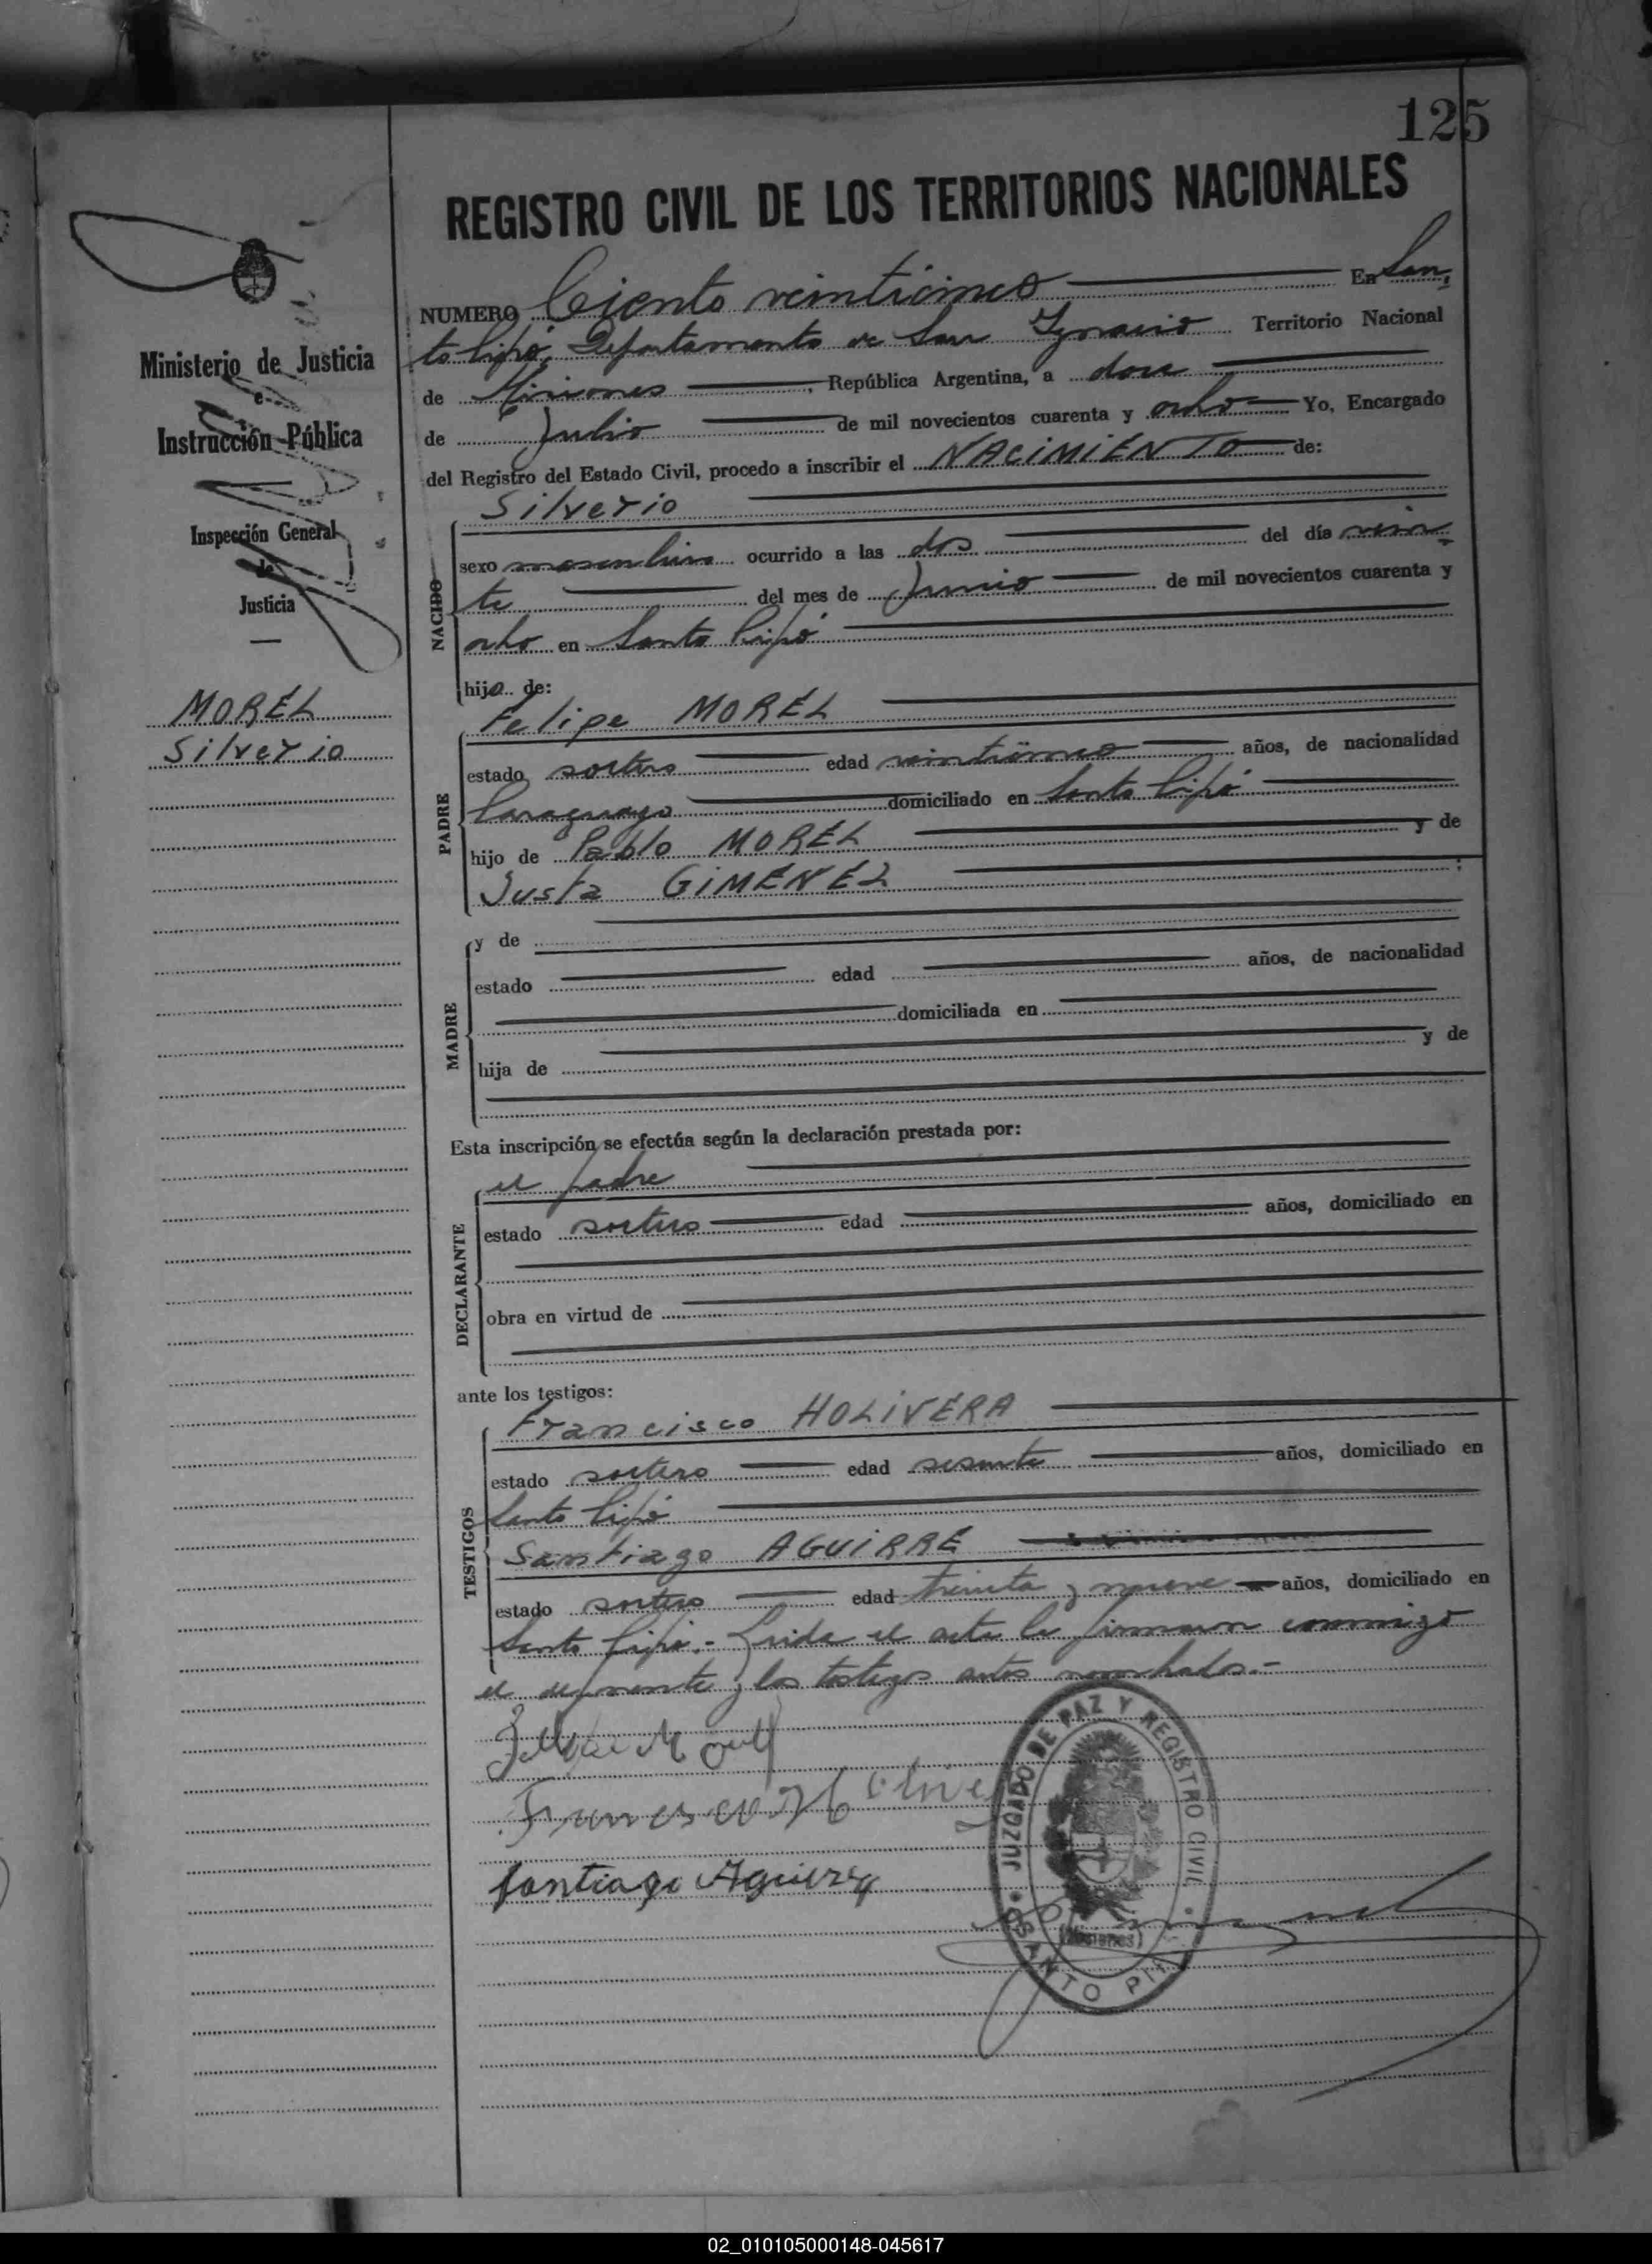 125
REGISTRO CIVIL DE LOS TERRITORIOS NACIONALES
Ministerio de Justicia
e
Instrucción Pública
Inspección General
de
Justicia
MORÉL
Silverio
NUMERO Ciento veinticinco En San
to Pipó, Departamento de San Ygnacio Territorio Nacional
de Misiones, República Argentina, a doce
de Julio de mil novecientos cuarenta y ocho Yo, Encargado
del Registro del Estado Civil, procedo a inscribir el NACIMIENTO de:
NACIDO
Silverio
sexo masculino ocurrido a las dos del día vein
te del mes de Junio de mil novecientos cuarenta y
ocho en Santo Pipó
hijo de:
PADRE
Felipe MORÉL
estado soltero edad veinticinco años, de nacionalidad
Paraguayo domiciliado en Santo Pipó
hijo de Pablo MORÉL y de
Justa GIMÉNÉZ ;
MADRE
y de
estado edad años, de nacionalidad
domiciliada en
hija de y de
Esta inscripción se efectúa según la declaración prestada por:
DECLARANTE
el padre
estado soltero edad años, domiciliado en
obra en virtud de
ante los testigos:
TESTIGOS
Francisco HOLIVÉRA
estado soltero edad sesenta años, domiciliado en
Santo Pipó
Santiago AGUIRRÉ
estado soltero edad treinta y nueve años, domiciliado en
Santo Pipó.- Leida el acta la firmaron conmigo
el deponente y los testigos antes nombrados.-
Morel
Francisco
Santiago
JUZGADO DE PAZ Y REGISTRO CIVIL
(Misiones)
SANTO PIPÓ
02_010105000148-045617